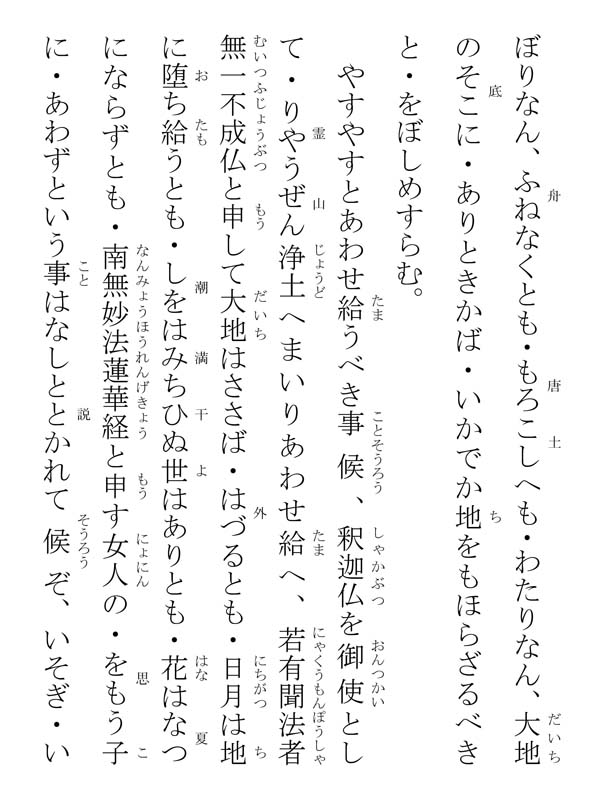 ぼりなん、ふねなくとも・もろこしへも・わたりなん、大地
のそこに・ありときかば・いかでか地をもほらざるべき
と・をぼしめすらむ。
やすやすとあわせ給うべき事候、釈迦仏を御使とし
て・りやうぜん浄土へまいりあわせ給へ、若有聞法者
無一不成仏と申して大地はささば・はづるとも・日月は地
に堕ち給うとも・しをはみちひぬ世はありとも・花はなつ
にならずとも・南無妙法蓮華経と申す女人の・をもう子
に・あわずという事はなしととかれて候ぞ、いそぎ・い